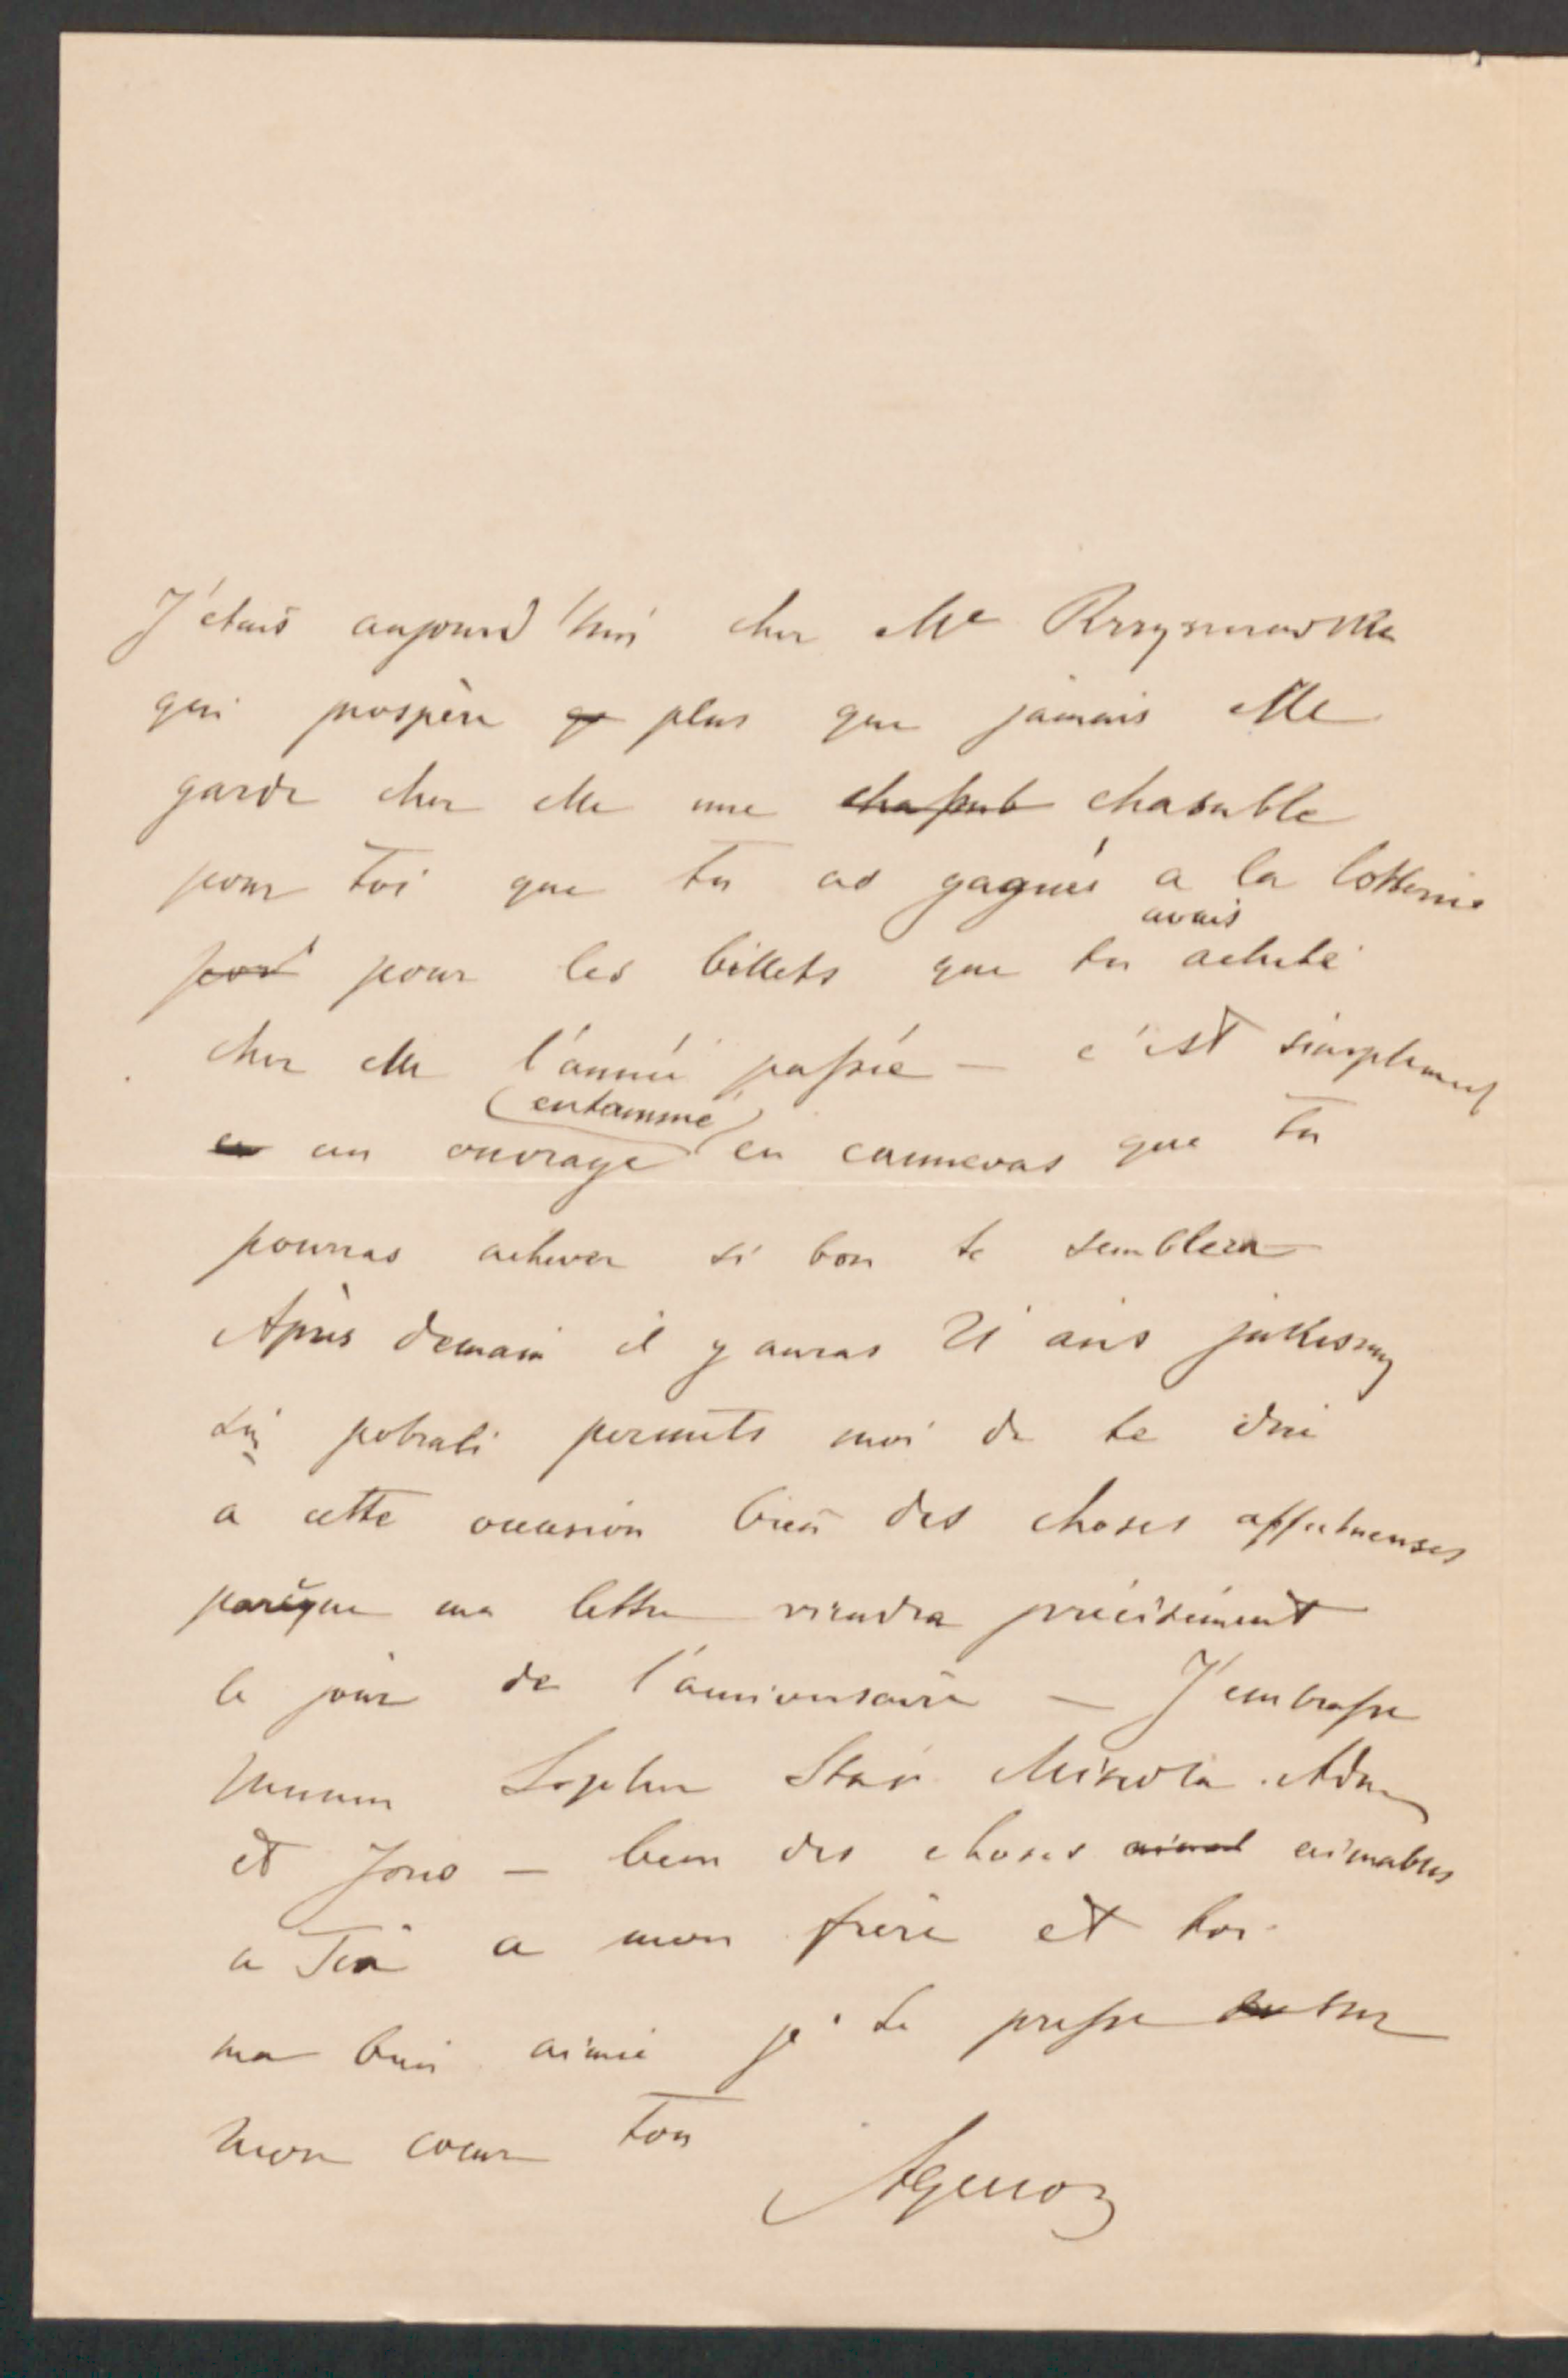 J'etais aujourd'hui chez Me
qui prospère plus que jamais elle
garde chez elle une chasuble
pour toi que tu as gagnés a la lotterie
pour les billets que tu avais acheté
chez elle l'année passée – c'est simplement
un ouvrage (entammé) en cannevas que tu
pourras achever si bon te semblera
Après demain il y auras 21 ans jakeśmy
się pobrali permets moi de te dire
a cette occasion bien des choses affectueuses
parceque ma lettre viendra précisément
le jour de l'anniversaire – J'embrasse
Sophie Staś Adam
et – bien des choses aimables
a a mon frère et toi
ma bien aimée je te presse sur
mon coeur ton
Agenor